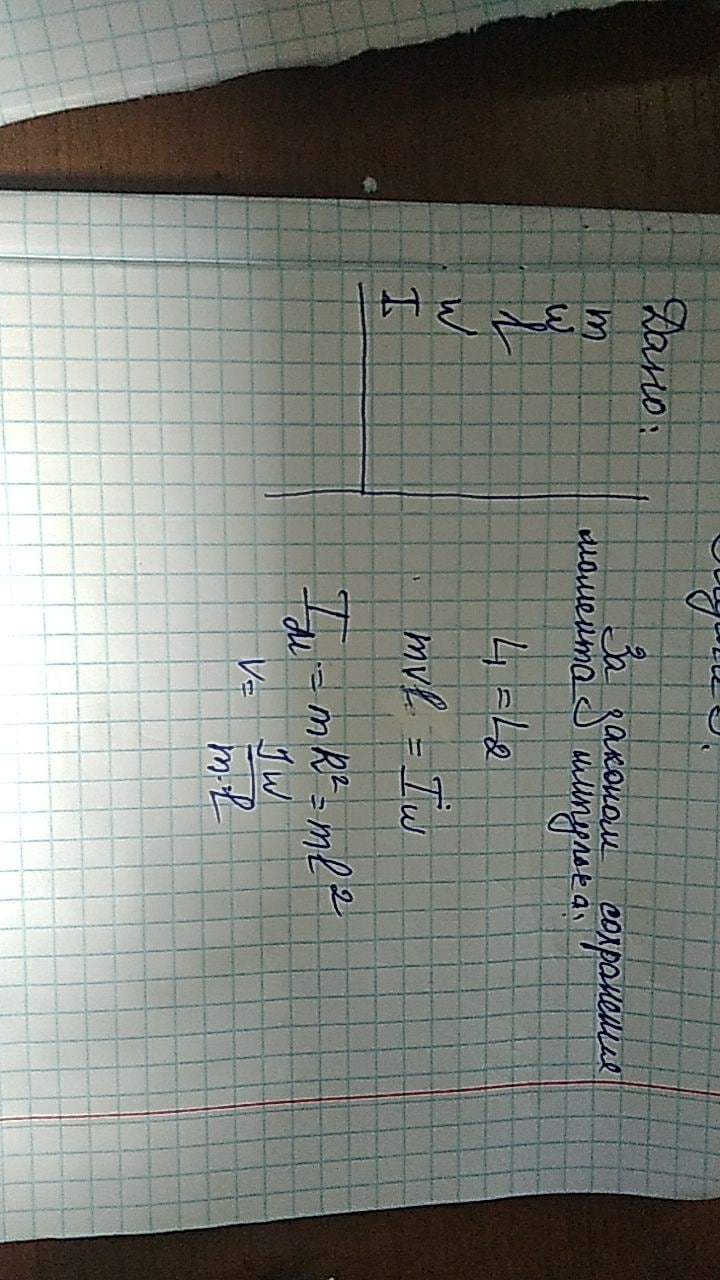 Дано:
m
w
l
w
I
За законом сохранение
момента импульса:
L1 = L2
mvl = Iw
I = mR² = ml²
v = Jw / m·l